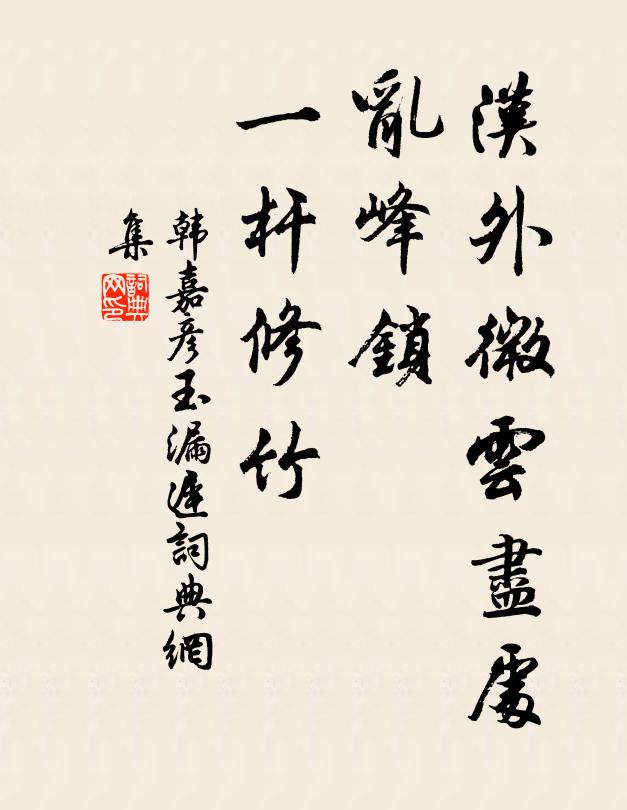 漢外微雲盡處
亂峰鎖
一杆修竹
韩嘉彦玉漏遲詞典網
集
詞典网印